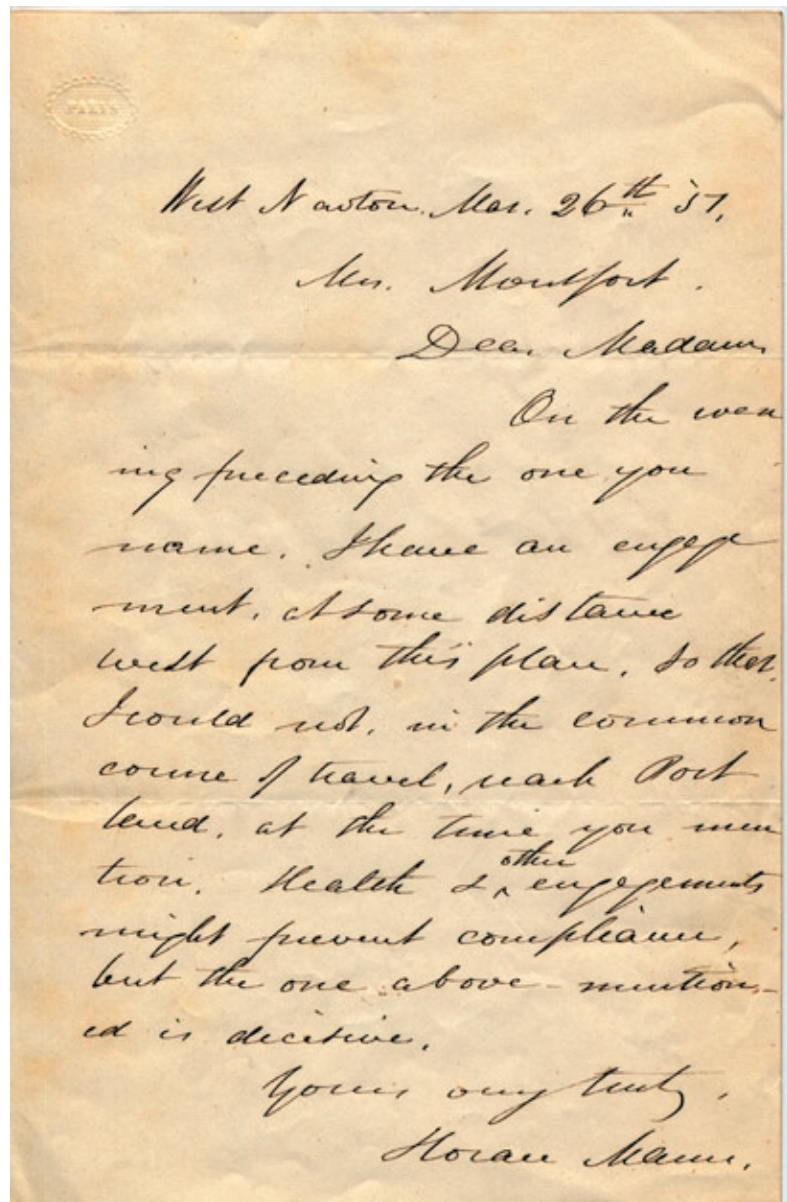 PARIS
West Newton. Mar. 26th '51.
Mrs. Mountfort.
Dear Madam
On the even
ing preceding the one you
name. I have an engage
ment, at some distance
west from this place, so that
I could not, in the common
course of travel, reach Port
land, at the time you men
tion. Health & other engagements
might prevent compliance,
but the one above-mention-
ed is decisive.
Yours very truly,
Horace Mann.